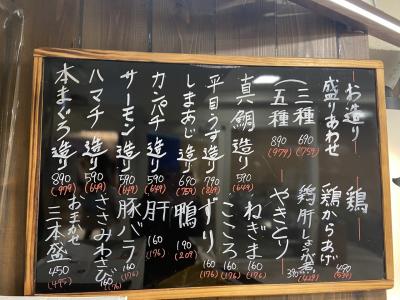 お造り
盛りあわせ
三種 690 (759)
五種 890 (979)
真鯛造り 590 (649)
平目うす造り 790 (869)
しまあじ造り 690 (759)
カンパチ造り 590 (649)
サーモン造り 590 (649)
ハマチ造り 590 (649)
本まぐろ造り 890 (979)
鶏
鶏からあげ 490 (539)
鶏肝しょうが煮 390 (429)
やきとり
ねぎま 160 (176)
こころ 160 (176)
ずり 160 (176)
鴨 190 (209)
肝 160 (176)
豚バラ 160 (176)
ささみわさび 160 (176)
お任かせ三本盛 450 (495)